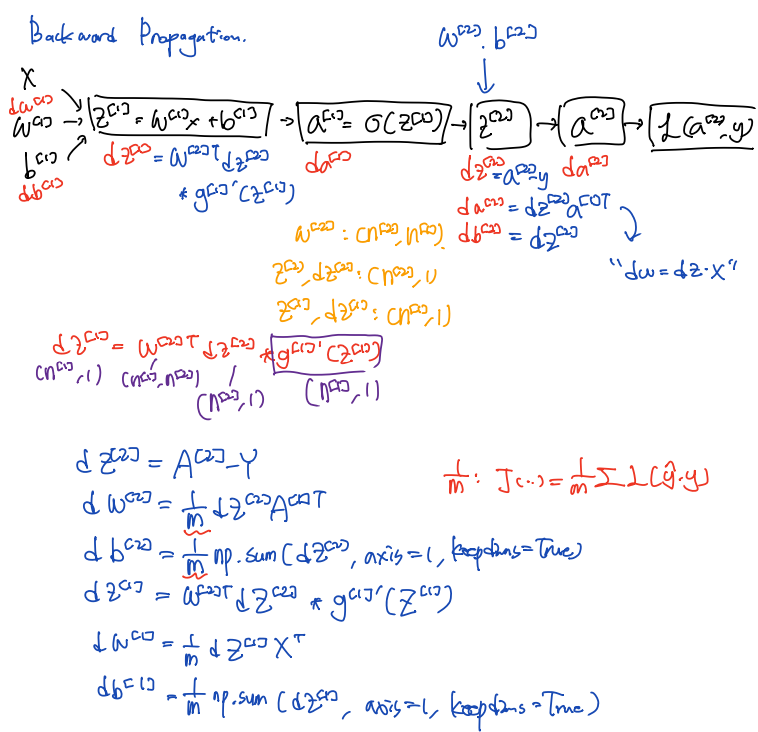 Backward Propagation.
w^[2]. b^[2]
x
da^[1]
w^[1]
b^[1]
db^[1]
z^[1] = w^[1]x + b^[1]
a^[1] = σ(z^[1])
z^[2]
a^[2]
L(a^[2], y)
dz^[1] = w^[2]T dz^[2]
* g^[1]'(z^[1])
da^[1]
dz^[2] = a^[2]-y
da^[2]
da^[2] = dz^[2] a^[1]T
db^[2] = dz^[2]
"dw = dz·x"
w^[2] : (n^[2], n^[1]).
z^[2], dz^[2] : (n^[2], 1)
z^[1], dz^[1] : (n^[1], 1)
dz^[1] = w^[2]T dz^[2] * g^[1]'(z^[1])
(n^[1], 1) (n^[1], n^[2]) (n^[2], 1) (n^[1], 1)
dz^[2] = A^[2] - Y
dw^[2] = 1/m dz^[2] A^[1]T
db^[2] = 1/m np.sum(dz^[2], axis=1, keepdims=True)
dz^[1] = w^[2]T dz^[2] * g^[1]'(z^[1])
dw^[1] = 1/m dz^[1] X^T
db^[1] = 1/m np.sum(dz^[1], axis=1, keepdims=True)
1/m : J(..) = 1/m Σ L(ŷ, y)